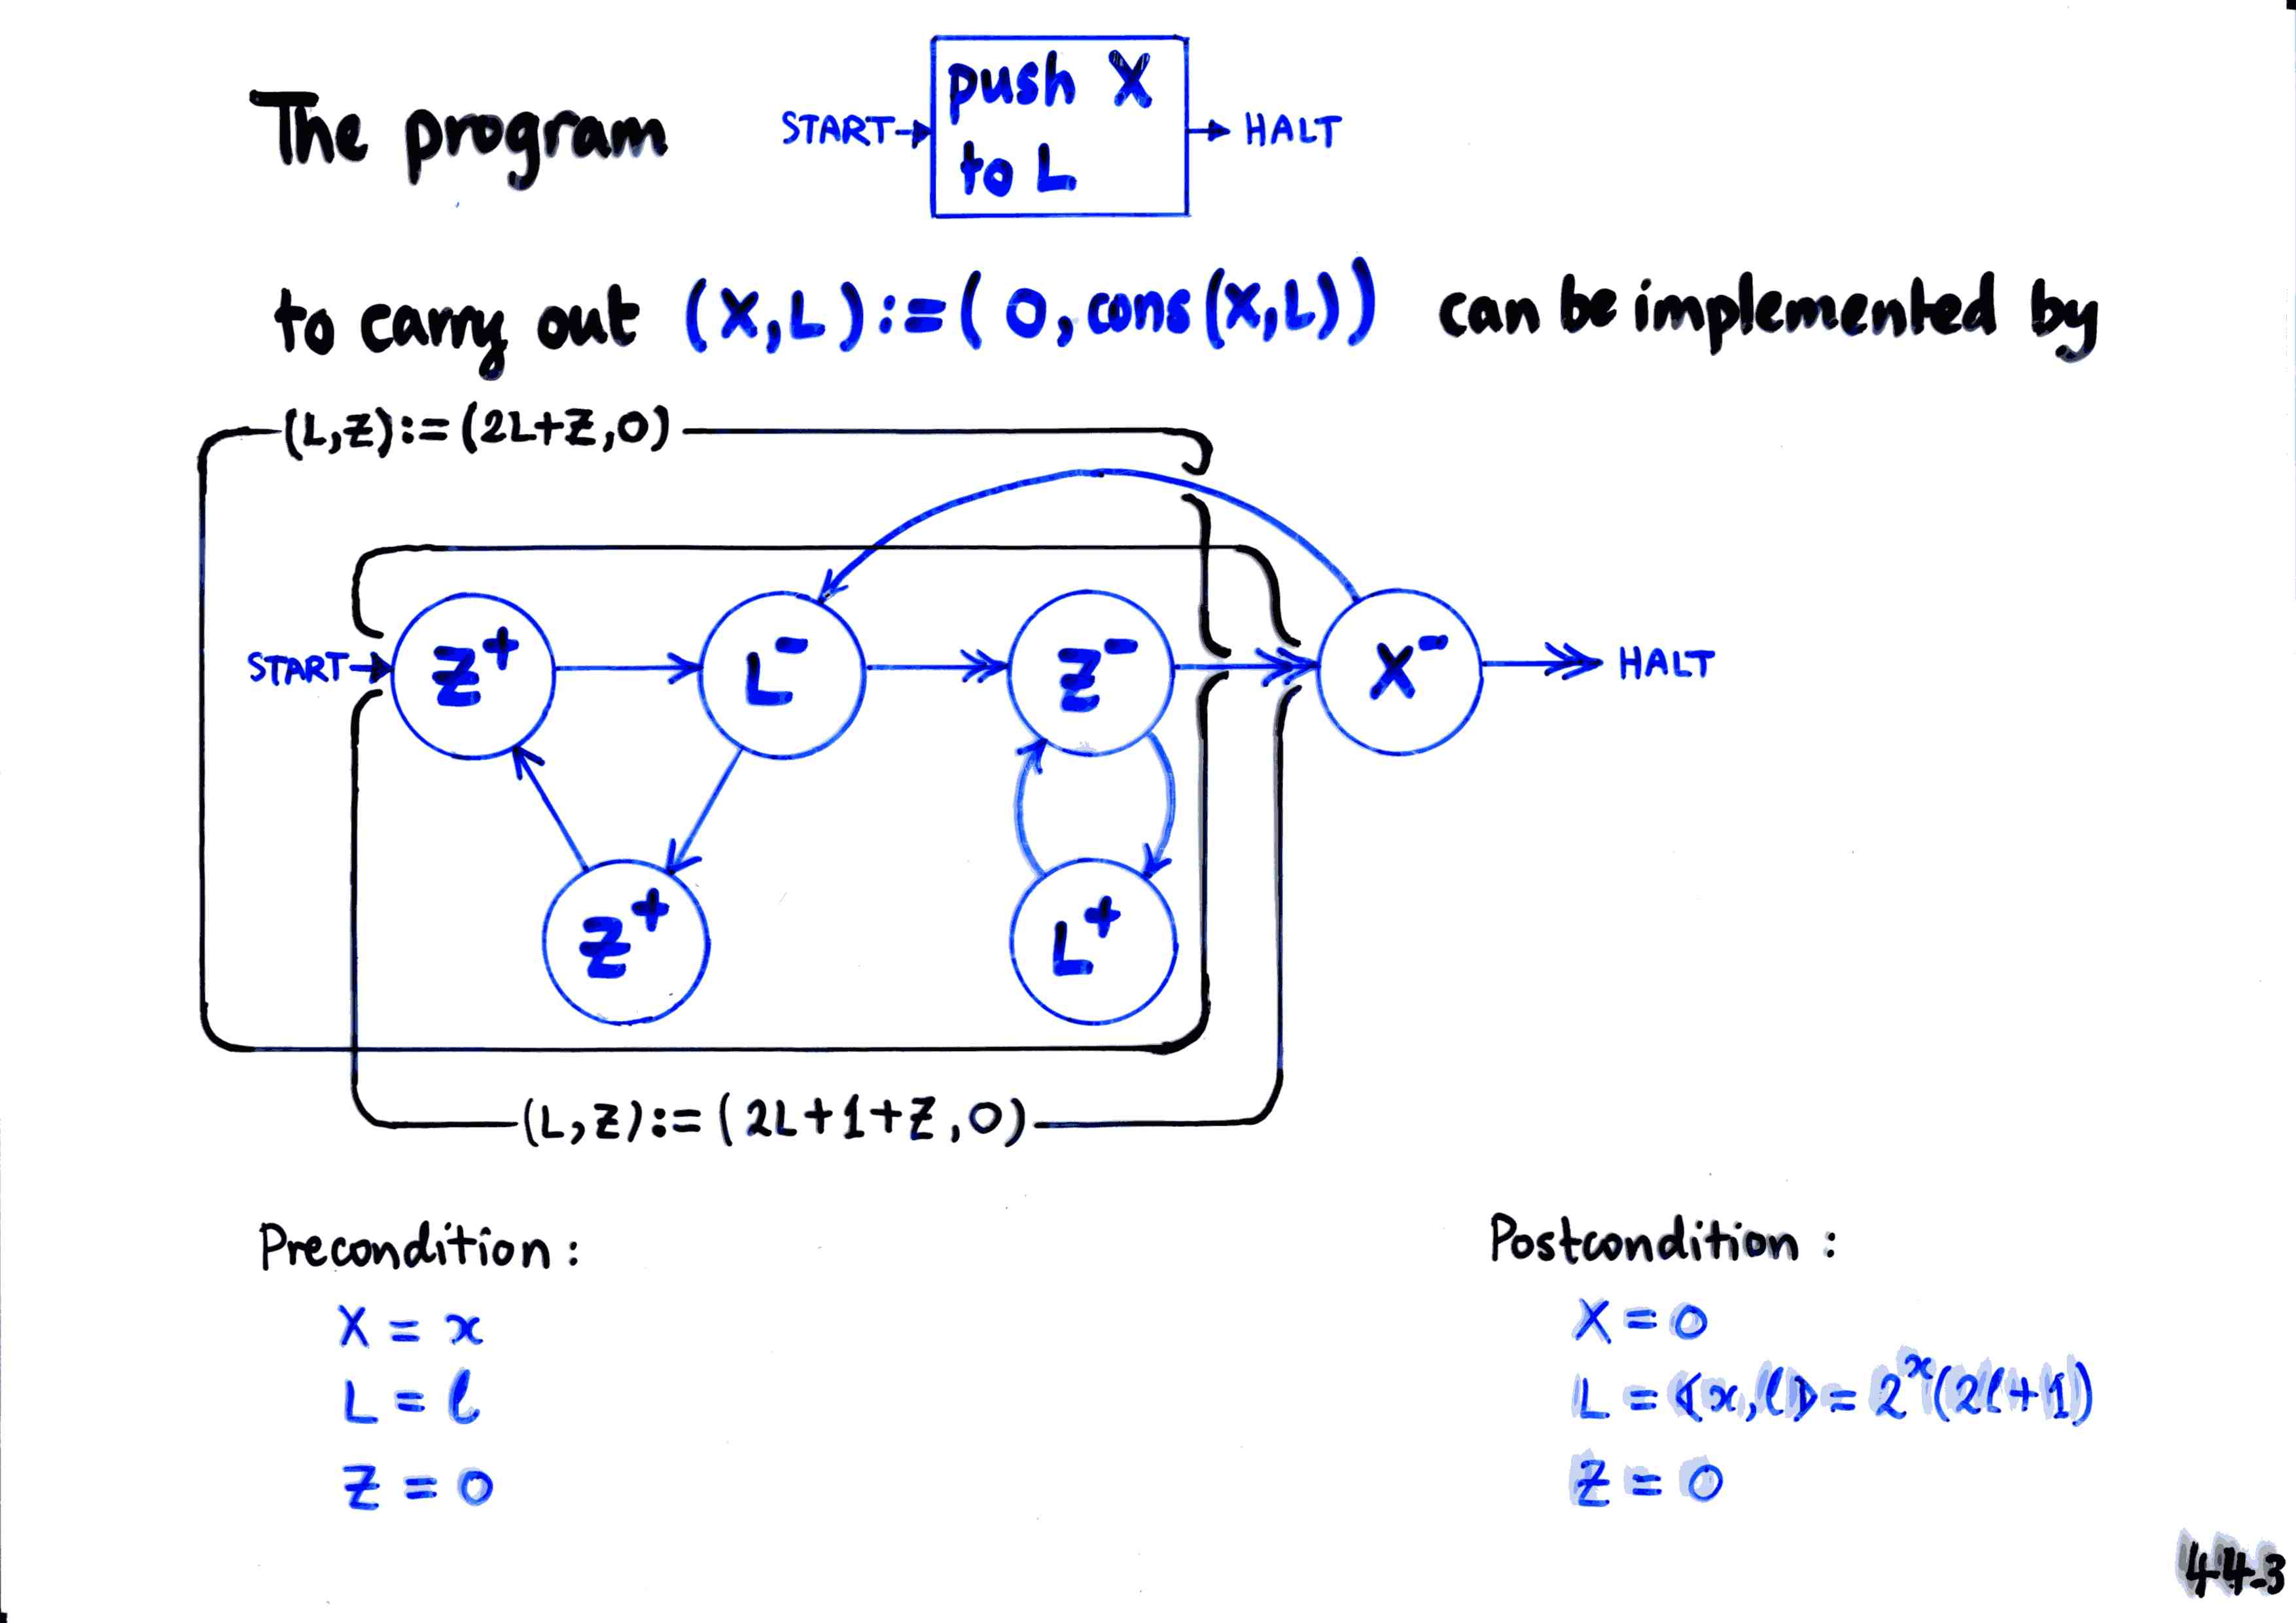 The program
START
push X
to L
HALT
to carry out (X,L):=(0,cons(X,L)) can be implemented by
(L,Z):=(2L+Z,0)
START
Z⁺
L⁻
Z⁻
X⁻
HALT
Z⁺
L⁺
(L,Z):=(2L+1+Z,0)
Precondition:
X = x
L = ℓ
Z = 0
Postcondition:
X = 0
L = ⟪x,ℓ⟫ = 2ˣ(2ℓ+1)
Z = 0